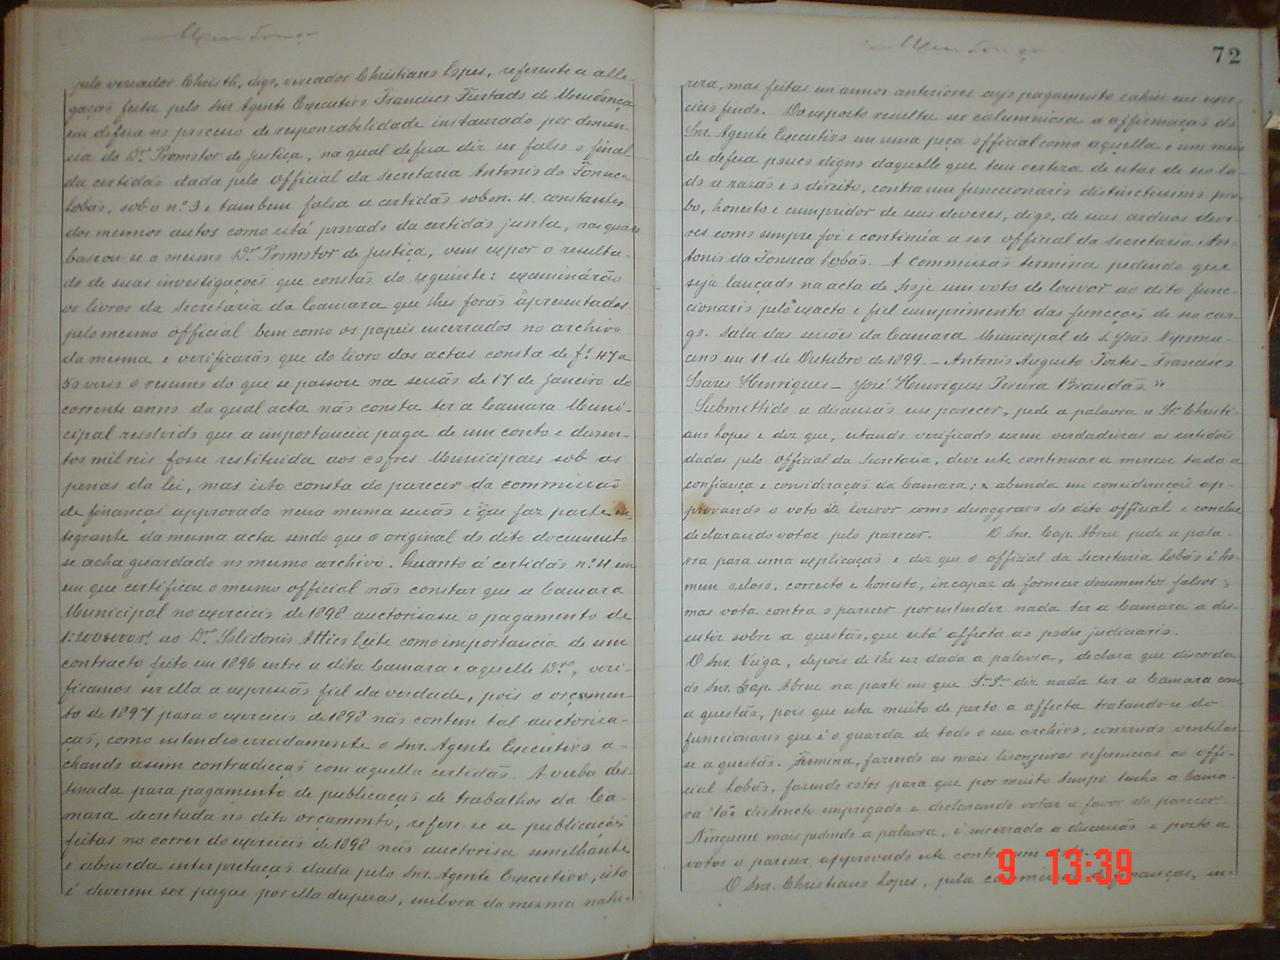 Mendonça
pelo vereador Christh, digo, vereador Christiano Lopes, referente a alle-
gação feita pelo Snr. Agente Executivo Francisco Furtado de Mendonça
em defesa no processo de responsabilidade instaurado por denun-
cia do Dr. Promotor de Justiça, na qual defesa diz ser falso o final
da certidão dada pelo official da secretaria Antonio da Fonseca
Lobão, sob o n.º 3 e tambem falsa a certidão sob o n. 4 constantes
dos mesmos autos como está provado da certidão junta, nas quaes
baseou-se o mesmo Dr. Promotor de Justiça, vem expor o resulta-
do de suas investigações que constão do seguinte: examinárão
os livros da Secretaria da Camara que lhes forão apresentados
pelo mesmo official bem como os papeis encerrados no archivo
da mesma e verificarão que do livro das actas consta de f. 49 a
50 verso o resumo do que se passou na sessão de 17 de Janeiro do
corrente anno da qual acta não consta ter a Camara Muni-
cipal resolvido que a importancia paga de um conto e duzen-
tos mil reis fosse restituida aos cofres Municipaes sob as
penas da lei, mas isto consta do parecer da commissão
de finanças approvado nessa mesma sessão e que faz parte in-
tegrante da mesma acta sendo que o original do dito documento
se acha guardado no mesmo archivo. Quanto á certidão n.º 4 em
em que certificou o mesmo official não constar que a Camara
Municipal no exercicio de 1898 auctorisasse o pagamento de
1:200$000rs. ao Dr. Selidonio Attico Leite como importancia de um
contracto feito em 1896 entre a dita Camara e aquelle Dr., veri-
ficamos ser ella a expressão fiel da verdade, pois o orçamen-
to de 1897 para o exercicio de 1898 não contem tal auctorisa-
ção, como entendeo erradamente o Snr. Agente Executivo a-
chando assim contradicção com aquella certidão. A verba des-
tinada para pagamento de publicação de trabalhos da Ca-
mara decretada no dito orçamento, refere-se a publicações
feitas no correr do exercicio de 1898 não auctorisa semelhante
e absurda interpretação dada pelo Snr. Agente Executivo, isto
é deverem ser pagas por ella despesas, embora da mesma natu-
Mendonça
72
reza, mas feitas em annos anteriores cujo pagamento cahio em exer-
cicio findo. Do exposto resulta ser calumniosa a affirmação do
Snr. Agente Executivo em uma peça official como aquella e um meio
de defesa pouco digno daquelle que tem certeza de estar de seo la-
do a razão e o direito, contra um funccionario distinctissimo pro-
bo, honesto e cumpridor de seus deveres, digo, de seus arduos deve-
res como sempre foi e continúa a ser official da secretaria An-
tonio da Fonseca Lobão. A commissão termina pedindo que
seja lançado na acta de hoje um voto de louvor ao dito func-
cionario pelo exacto e fiel cumprimento das funcções de seo car-
go. Sala das sessões da Camara Municipal de S. João Nepomu-
ceno em 11 de Outubro de 1899 _ Antonio Augusto Fortes _ Francisco
Soares Henriques _ José Henriques Pereira Brandão."
Submettido a discussão esse parecer, pede a palavra o Sr. Christi-
ano Lopes e diz que, estando verificado serem verdadeiras as certidões
dadas pelo official da Secretaria, deve este continuar a merecer toda a
confiança e consideração da Camara; abunda em considerações ap-
provando o voto de louvor como desaggravo do dito official e conclue
declarando votar pelo parecer. O Snr. Cap. Abreu pede a pala-
vra para uma explicação e diz que o official da Secretaria Lobão é ho-
mem zeloso, correcto e honesto, incapaz de fornecer documentos falsos,
mas vota contra o parecer por entender nada ter a Camara a dis-
cutir sobre a questão, que está affecta ao poder judiciario.
O Snr. Veiga, depois de lhe ser dada a palavra, declara que discorda
do Snr. Cap. Abreu na parte em que S. S. diz nada ter a Camara com
a questão, pois que esta muito de perto a affecta tratando-se do
funccionario que é o guarda de todo o seu archivo, convindo ventilar-
se a questão. Termina, fazendo as mais lisongeiras referencias ao offi-
cial Lobão, fazendo votos para que por muito tempo tenha a Cama-
ra tão distincto empregado e declarando votar a favor do parecer.
Ninguem mais pedindo a palavra, é encerrada a discussão e posto a
votos o parecer, approvado este contra um
O Snr. Christiano Lopes, pela finanças,
9 13:39